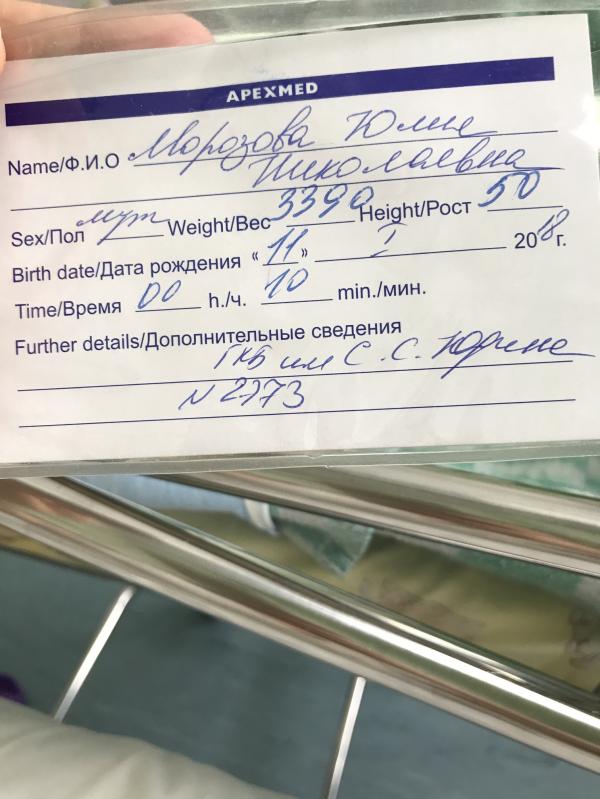 APEXMED
Name/Ф.И.О Морозова Юлия
Николаевна
Sex/Пол муж Weight/Вес 3390 Height/Рост 50
Birth date/Дата рождения « 11 » I 2018 г.
Time/Время 00 h./ч. 10 min./мин.
Further details/Дополнительные сведения
ГКБ им С. С. Юдина
N 2773